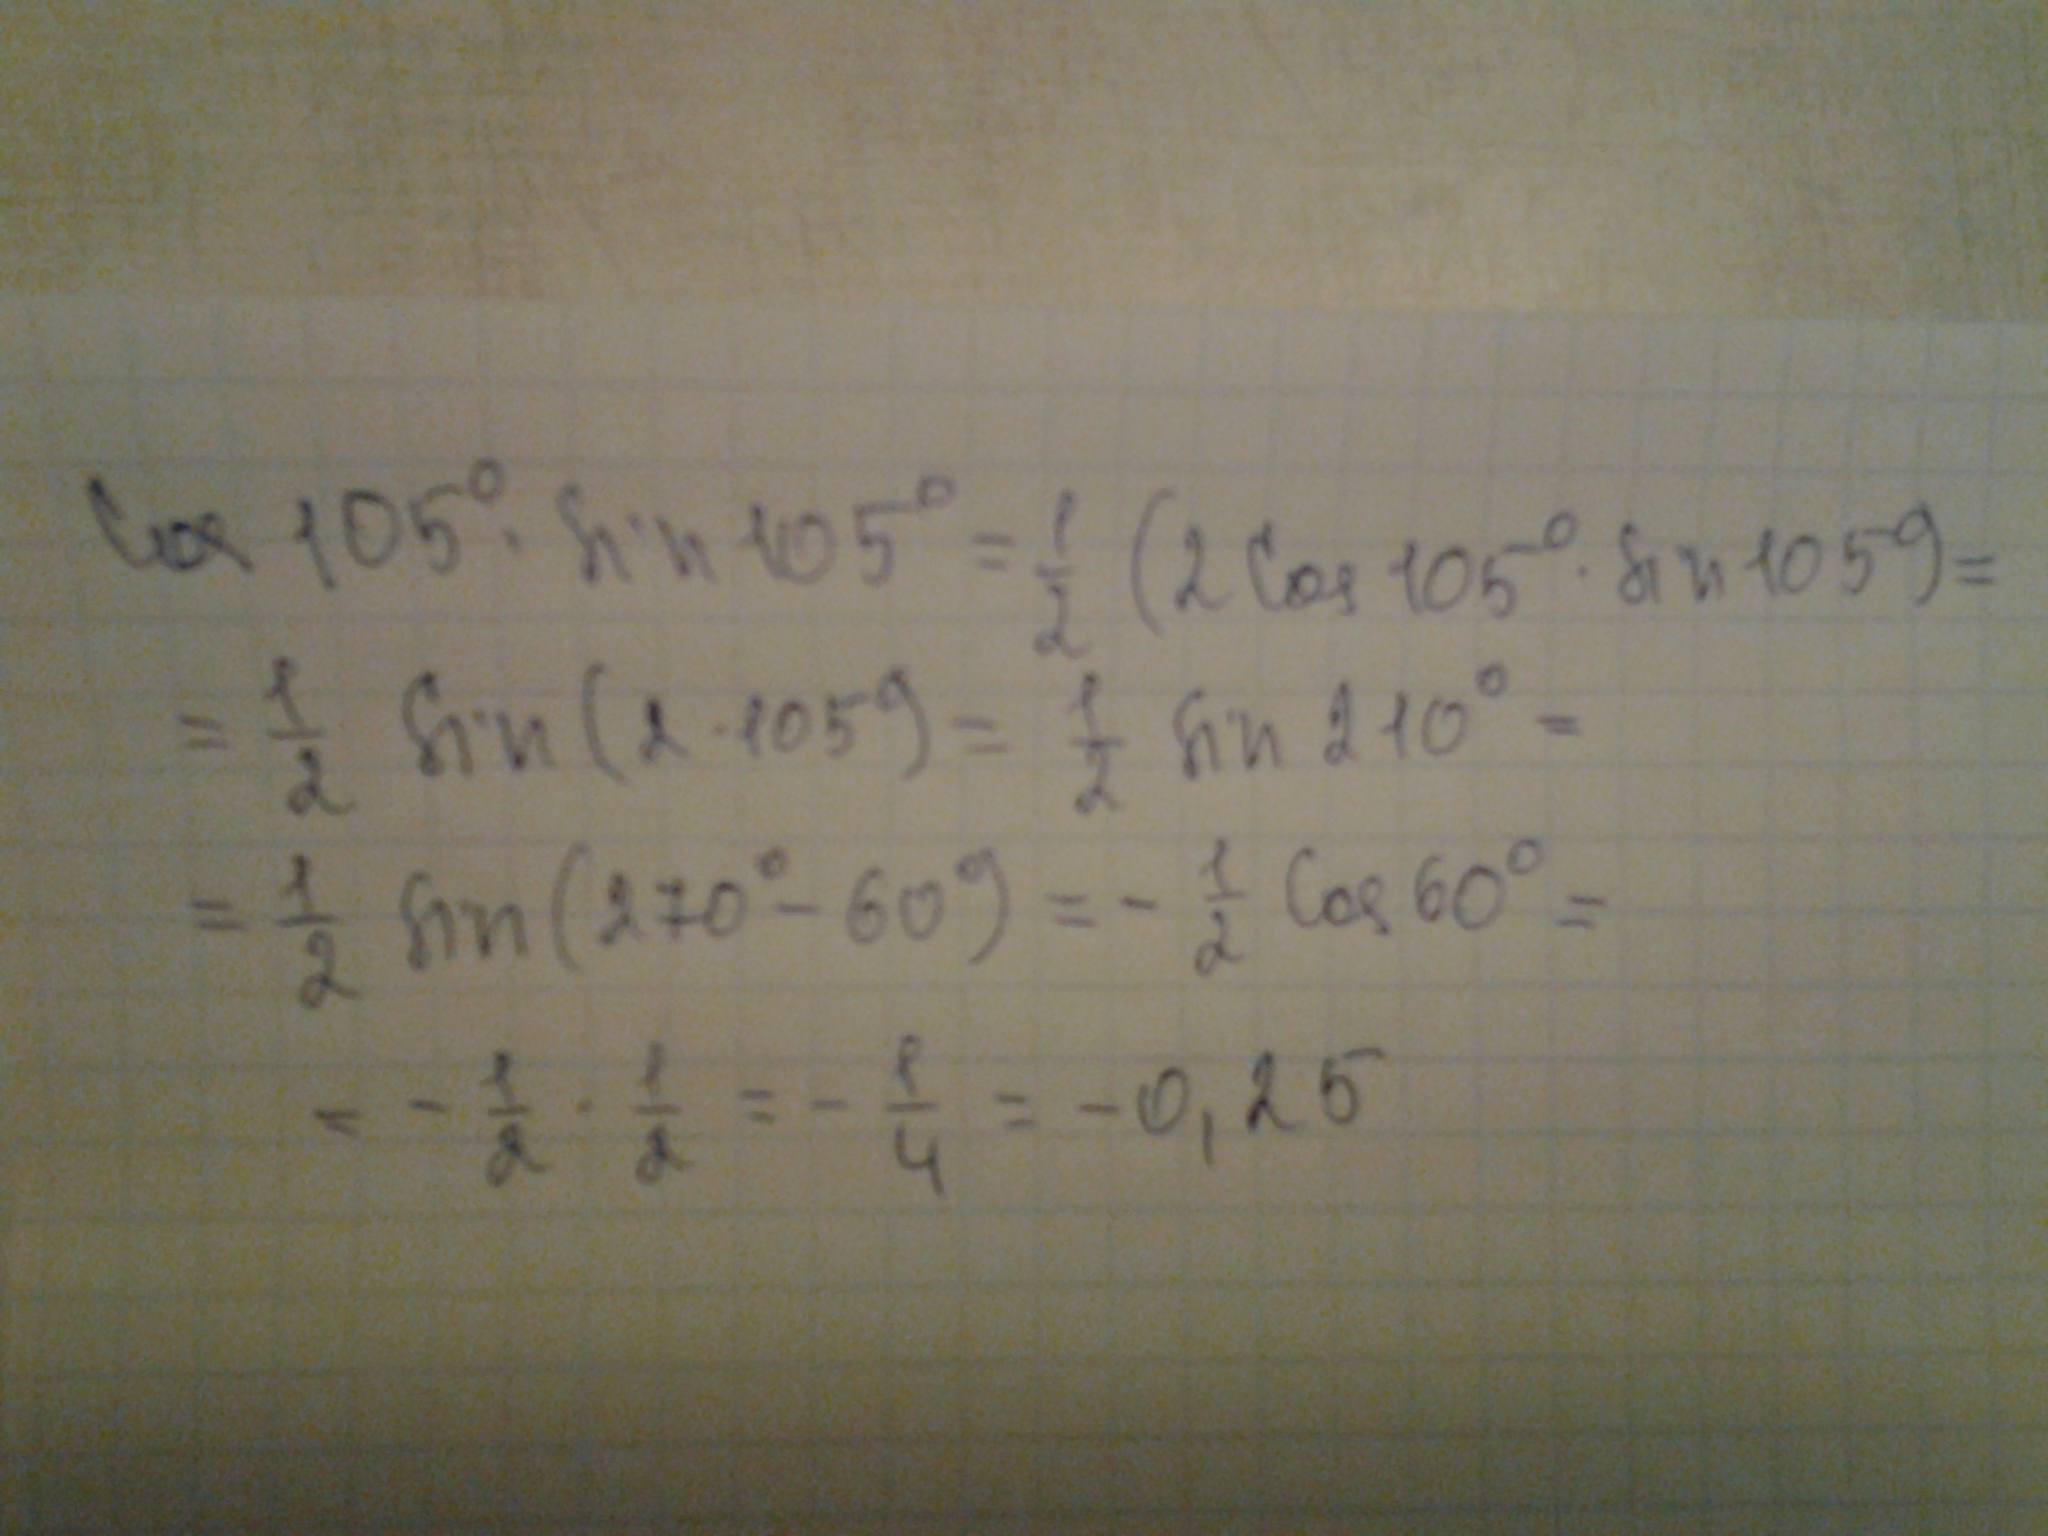 Cos 105° · Sin 105° = 1/2 (2 Cos 105° · Sin 105°) =
= 1/2 Sin (2 · 105°) = 1/2 Sin 210° =
= 1/2 Sin (270° - 60°) = - 1/2 Cos 60° =
= - 1/2 · 1/2 = - 1/4 = -0,25